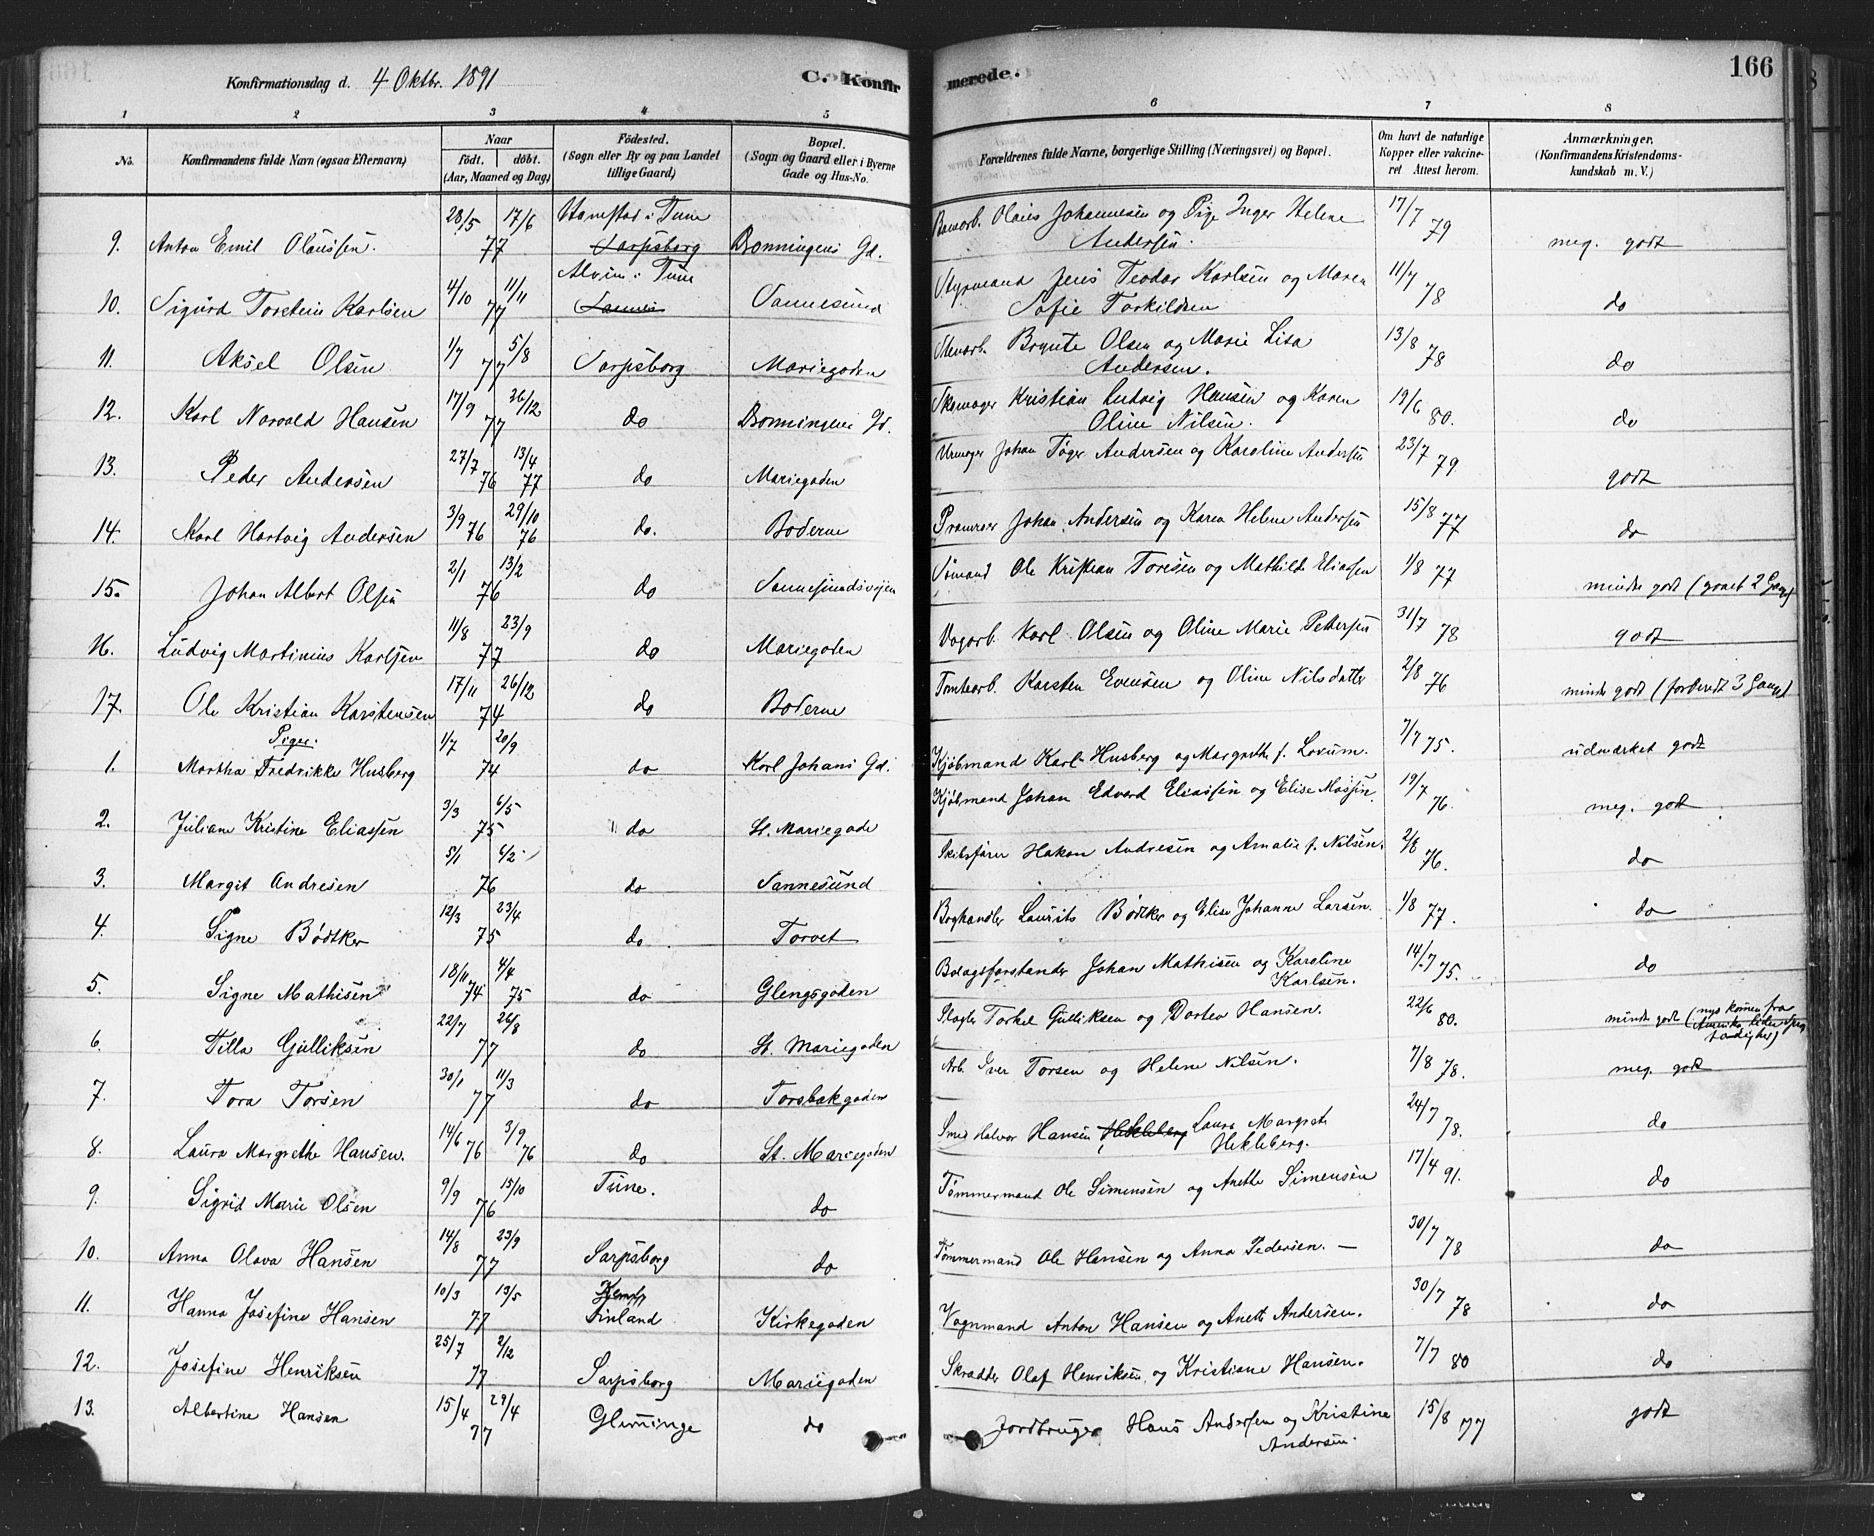 Konfirmationsdag d. 4 Oktbr. 1891 C. Konfirmerede. 166
1 2 3 4 5 6 7 8
No. Konfirmandens fulde Navn (ogsaa Efternavn) Naar født. døbt. (Aar, Maaned og Dag) Fødested. (Sogn eller By og paa Landet tillige Gaard) Bopæl. (Sogn og Gaard eller i Byerne Gade og Hus-No. Forældrenes fulde Navne, borgerlige Stilling (Næringsvei) og Bopæl. Om havt de naturlige Kopper eller vakcineret Attest herom. Anmærkninger. (Konfirmandens Kristendomskundskab m. V.)
9. Anton Emil Olaussen. 28/5 17/6 77 Hanestad i Tune Sarpsborg Bonningens Gd. Olaus Johannesen og Pige Inger Helene Andersen. 17/7 79 meg. godt
10. Sigurd Torstein Karlsen 4/10 11/11 77 Alvim i Tune Sannesund Styrmand Jens Teodor Karlsen og Maren Sofie Torkildsen 11/7 78 do
11. Aksel Olsen 1/7 5/8 77 Sarpsborg Mariegaden Stenarb. Brynte Olsen og Marie Lisa Andersen. 13/8 78 do
12. Karl Narvald Hansen 17/9 26/12 77 do Bonningens Gd. Skomager Kristian Ludvig Hansen og Karen Oline Nilsen. 19/6 80. do
13. Peder Andersen 27/7 76 13/4 77 do Mariegaden Urmager Johan Tøger Andersen og Karoline Andersen 23/7 79 godt
14. Karl Hartvig Andersen 3/9 76 29/10 76 do. Boderne Pramroer Johan Andersen og Karen Helene Andersen 15/8 77 do
15. Johan Albert Olsen 2/1 13/2 76 do Sannesundsvejen Sømand Ole Kristian Toresen og Mathilde Eliassen 1/8 77 mindre godt (gaaet 2 Gange)
16. Ludvig Martinius Karlsen 11/8 23/9 77 do Mariegaden Vogarb. Karl Olsen og Oline Marie Pettersen 31/7 78 godt
17. Ole Kristian Karstensen 17/11 26/12 74 do Boderne Tomtearb. Karsten Evensen og Oline Nilsdatter 2/8 76 mindre godt (forberedt 3 Gange)
Piger.
1. Martha Fredrikke Husberg 1/7 20/9 74 do Karl Johans Gd. Kjøbmand Karl Husberg og Margrethe f. Lorum. 7/7 75. udmærket godt
2. Juliane Kristine Eliassen 3/3 6/5 75 do St. Mariegade Kjøbmand Johan Edvard Eliassen og Elise Mossin. 19/7 76. meg. godt
3. Margit Andresen 5/1 6/2 76 do Sannesund Skibsfører Hakon Andresen og Amalie f. Nilsen. 2/8 76. do
4. Signe Bødtker 12/3 23/4 75 do Torvet Boghandler Laurits Bødtker og Elise Johanne Larsen. 1/8 77. do
5. Signe Mathisen 18/11 74 4/4 75 do Glengsgaden Bolagsforstander Johan Mathisen og Karoline Karlsen. 14/7 75. do
6. Tilla Gulliksen 22/7 26/8 77 do St. Mariegaden Slagter Torkel Gulliksen og Dortea Hansen. 22/6 80. mindre godt (nys kommen fra Amerika, liden
7. Tora Torsen 30/1 11/3 77 do Torsbækgaden Arb. Iver Torsen og Helene Nilsen. 7/8 78. meg. godt
8. Laura Margrethe Hansen. 14/6 76 3/9 76 do St. Mariegaden Smed Halvor Hansen Hekleberg Laura Margrete Hekleberg. 24/7 78. do
9. Sigrid Marie Olsen 9/9 15/10 76 Tune. do Tømmermand Ole Simensen og Anette Simensen 17/4 91. do
10. Anna Olava Hansen 14/8 23/9 77 Sarpsborg do Tømmermand Ole Hansen og Anna Pedersen. — 30/7 78 do
11. Hanna Josefine Hansen 10/3 13/5 77 Finland Kirkegaden Vognmand Anton Hansen og Anette Andersen. 30/7 78 do
12. Josefine Henriksen 25/7 2/12 77 Sarpsborg Mariegaden Skrædder Olaf Henriksen og Kristiane Hansen. 7/7 80 do
13. Albertine Hansen 15/4 29/4 77 Glemminge do Jordbruger Hans Andersen og Kristine Andersen. 15/8 77 godt